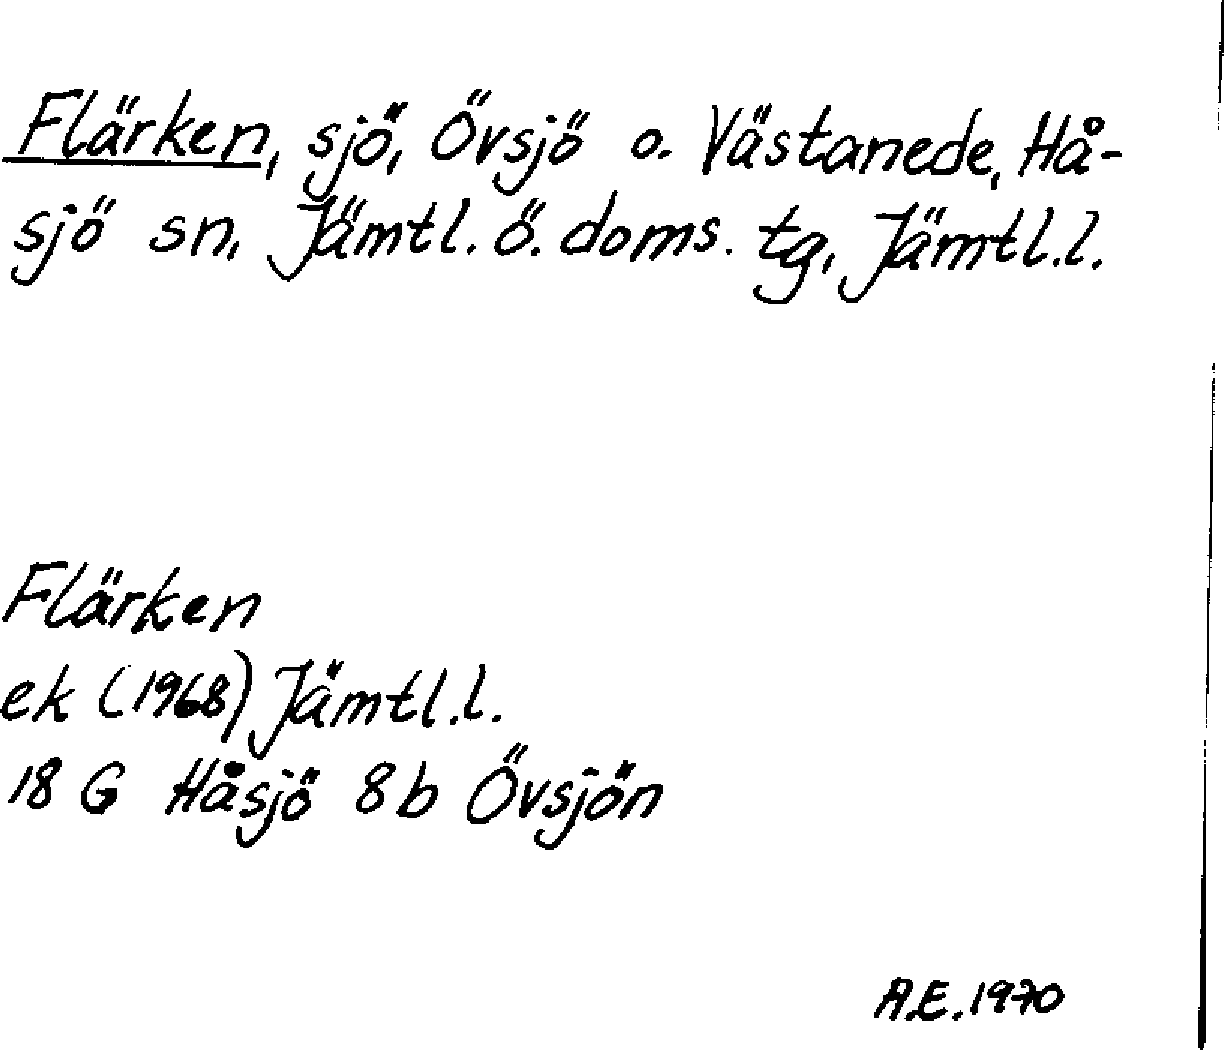 Flärken, sjö, Övsjö o. Västanede, Hå-
sjö sn, Jämtl. ö. doms. tg, Jämtl.l.
Flärken
ek (1968) Jämtl.l.
18 G Håsjö 8b Övsjön
A.E. 1970